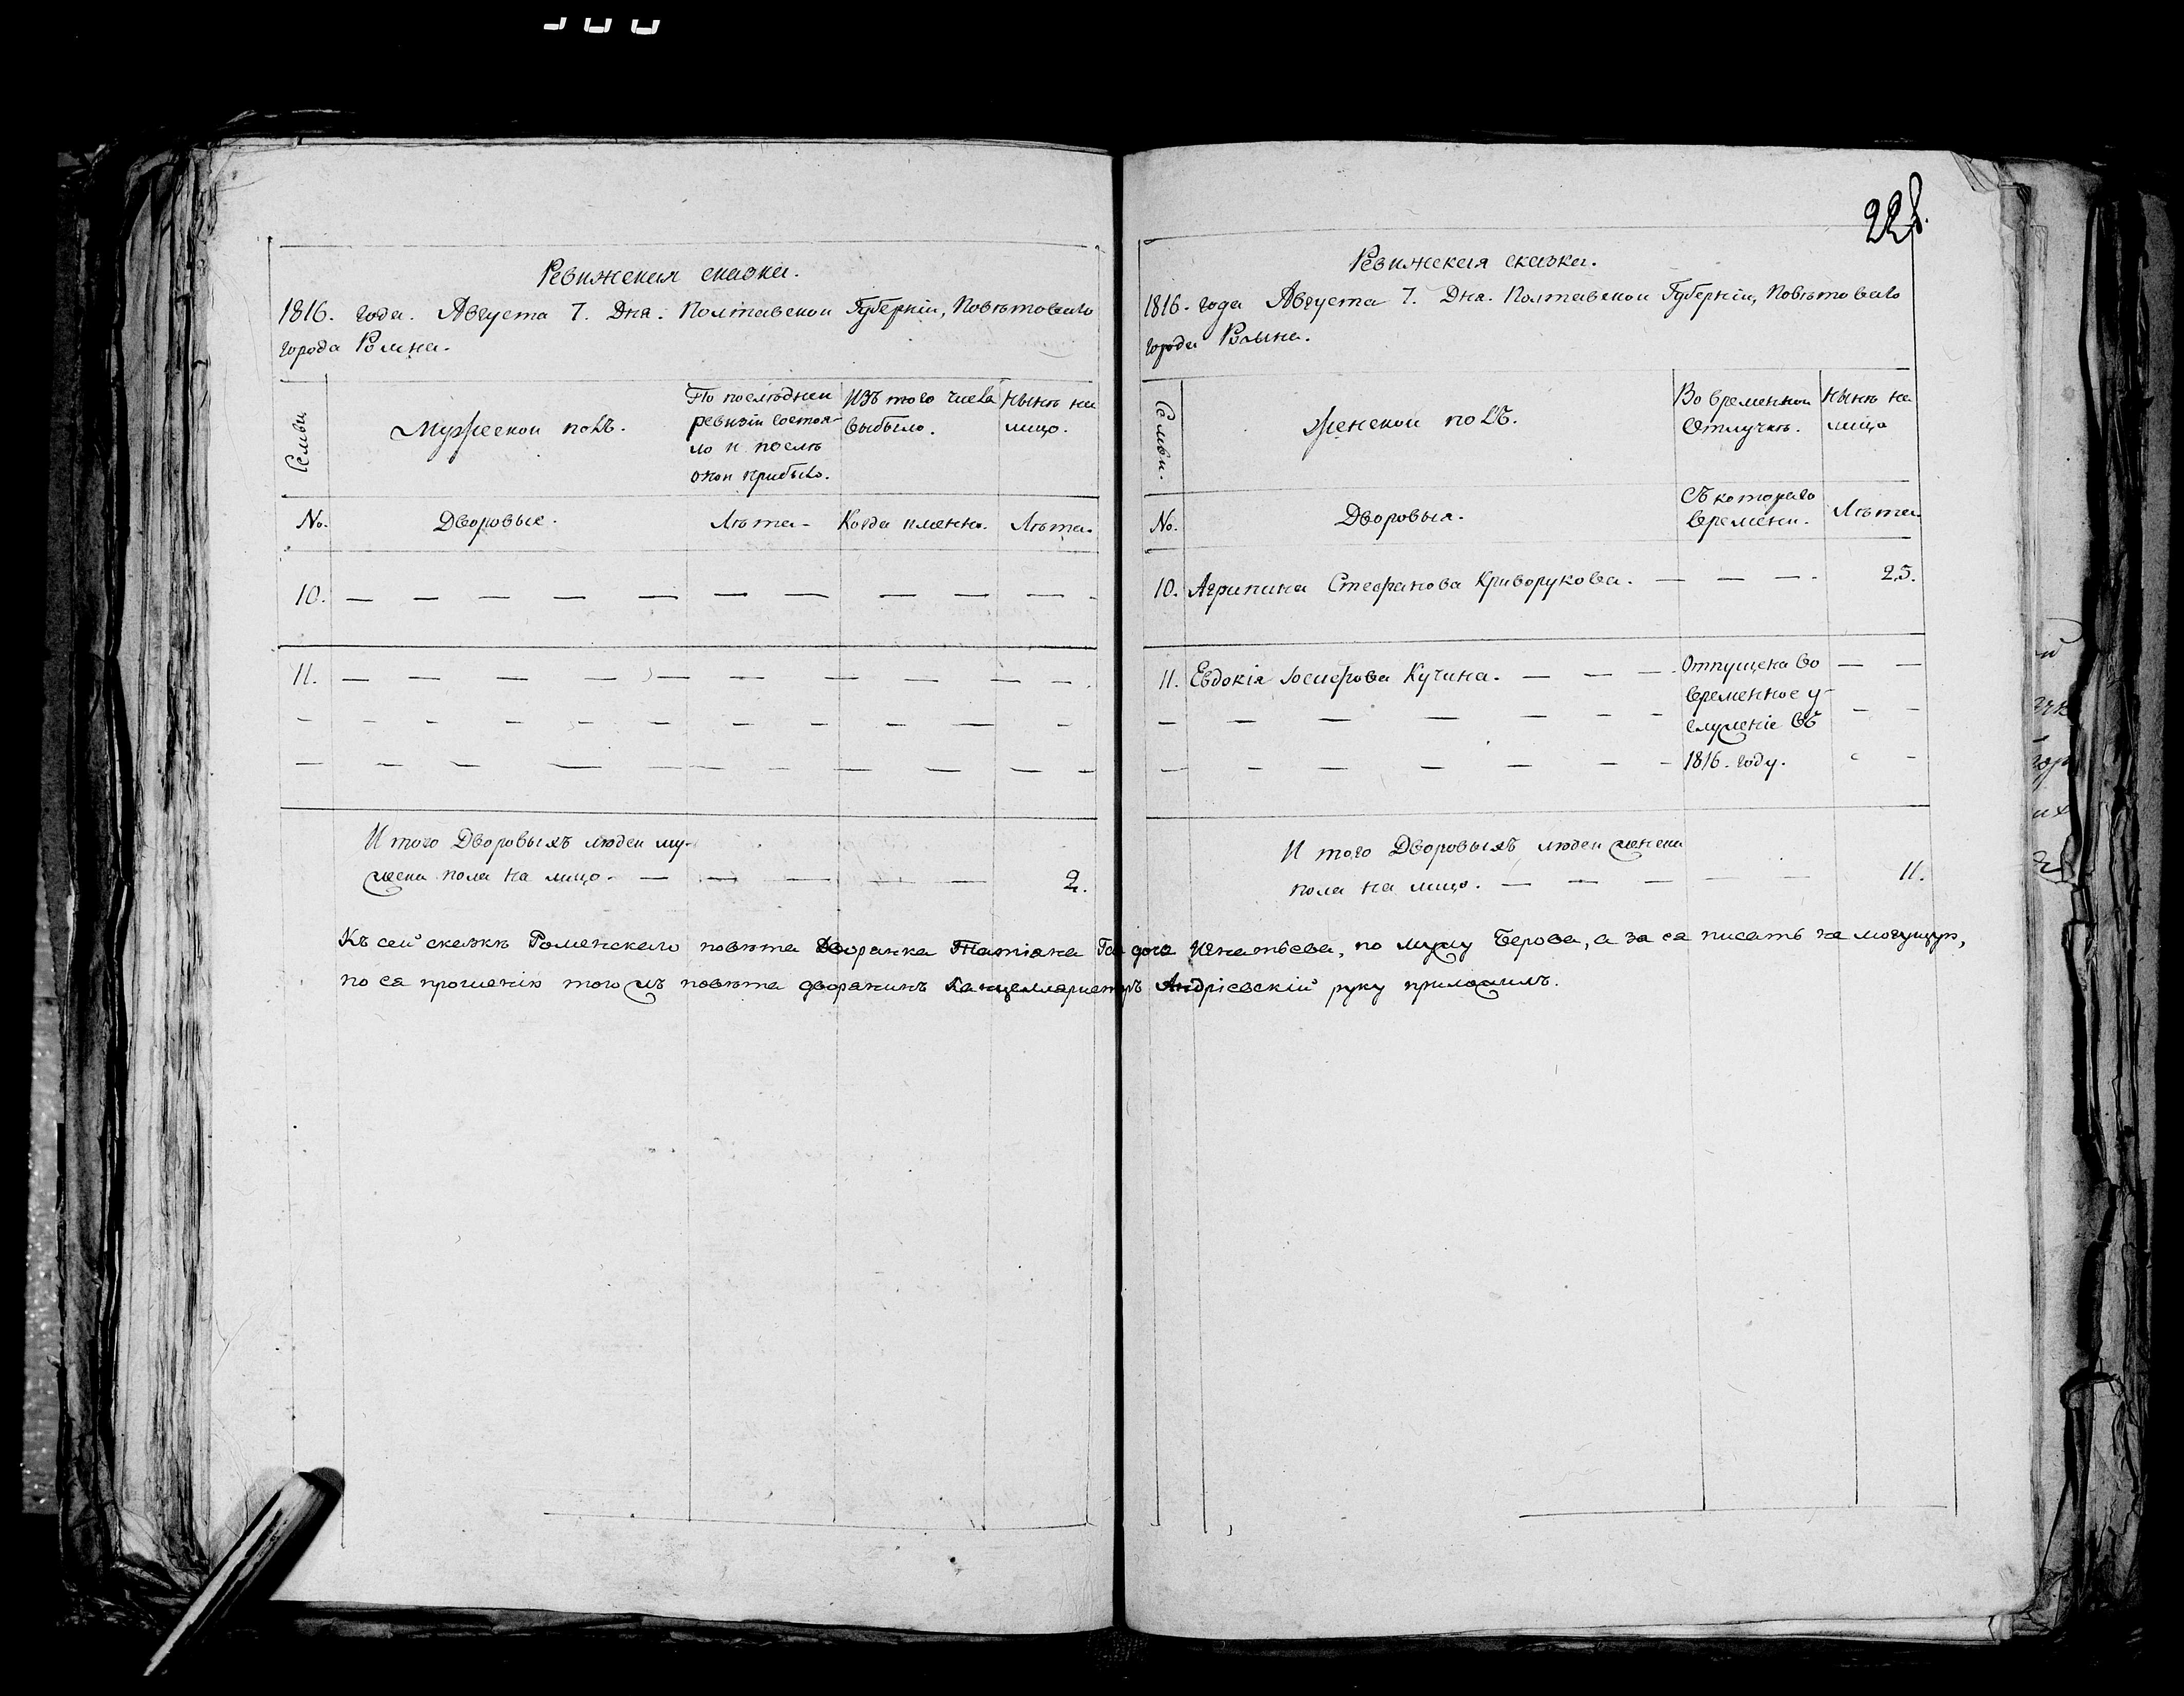 228.
Ревижская сказка.
1816. года. Августа 7. Дня. Полтавской Губерніи, Повѣтоваго
города Ромна.
Семьи
Мужеской полъ.
По послѣдней
ревизіи состоя-
ло и послѣ
оной прибыло.
Изъ того числа
выбыло.
Нынѣ на
лицо.
№.
Дворовые.
Лѣта.
Когда именно.
Лѣта.
10. — — — — — — — — — —
11. — — — — — — — — — —
И того Дворовыхъ людей му-
жеска пола на лицо. — — — — 2.
Ревижская сказка.
1816. года Августа 7. Дня. Полтавской Губерніи, Повѣтоваго
города Ромна.
Семьи.
Женской полъ.
Во временной
Отлучкѣ.
Нынѣ на
лицо
№.
Дворовыя.
Съ котораго
времени.
Лѣта.
10. Агрипина Стефанова Криворукова. — — — 25.
11. Евдокія Іосифова Кучина. — — — Отпущена во — —
временное у-
служеніе въ
1816. году.
И того Дворовыхъ людей женска
пола на лицо. — — — — — 11.
Къ сей сказкѣ Роменскаго повѣта Дворянка Татіана Игнатьева, по мужу Берова, а за ея писать не могущую,
по ея прошенію того жъ повѣта дворянинъ Канцеляристръ Андріевскій руку приложилъ.